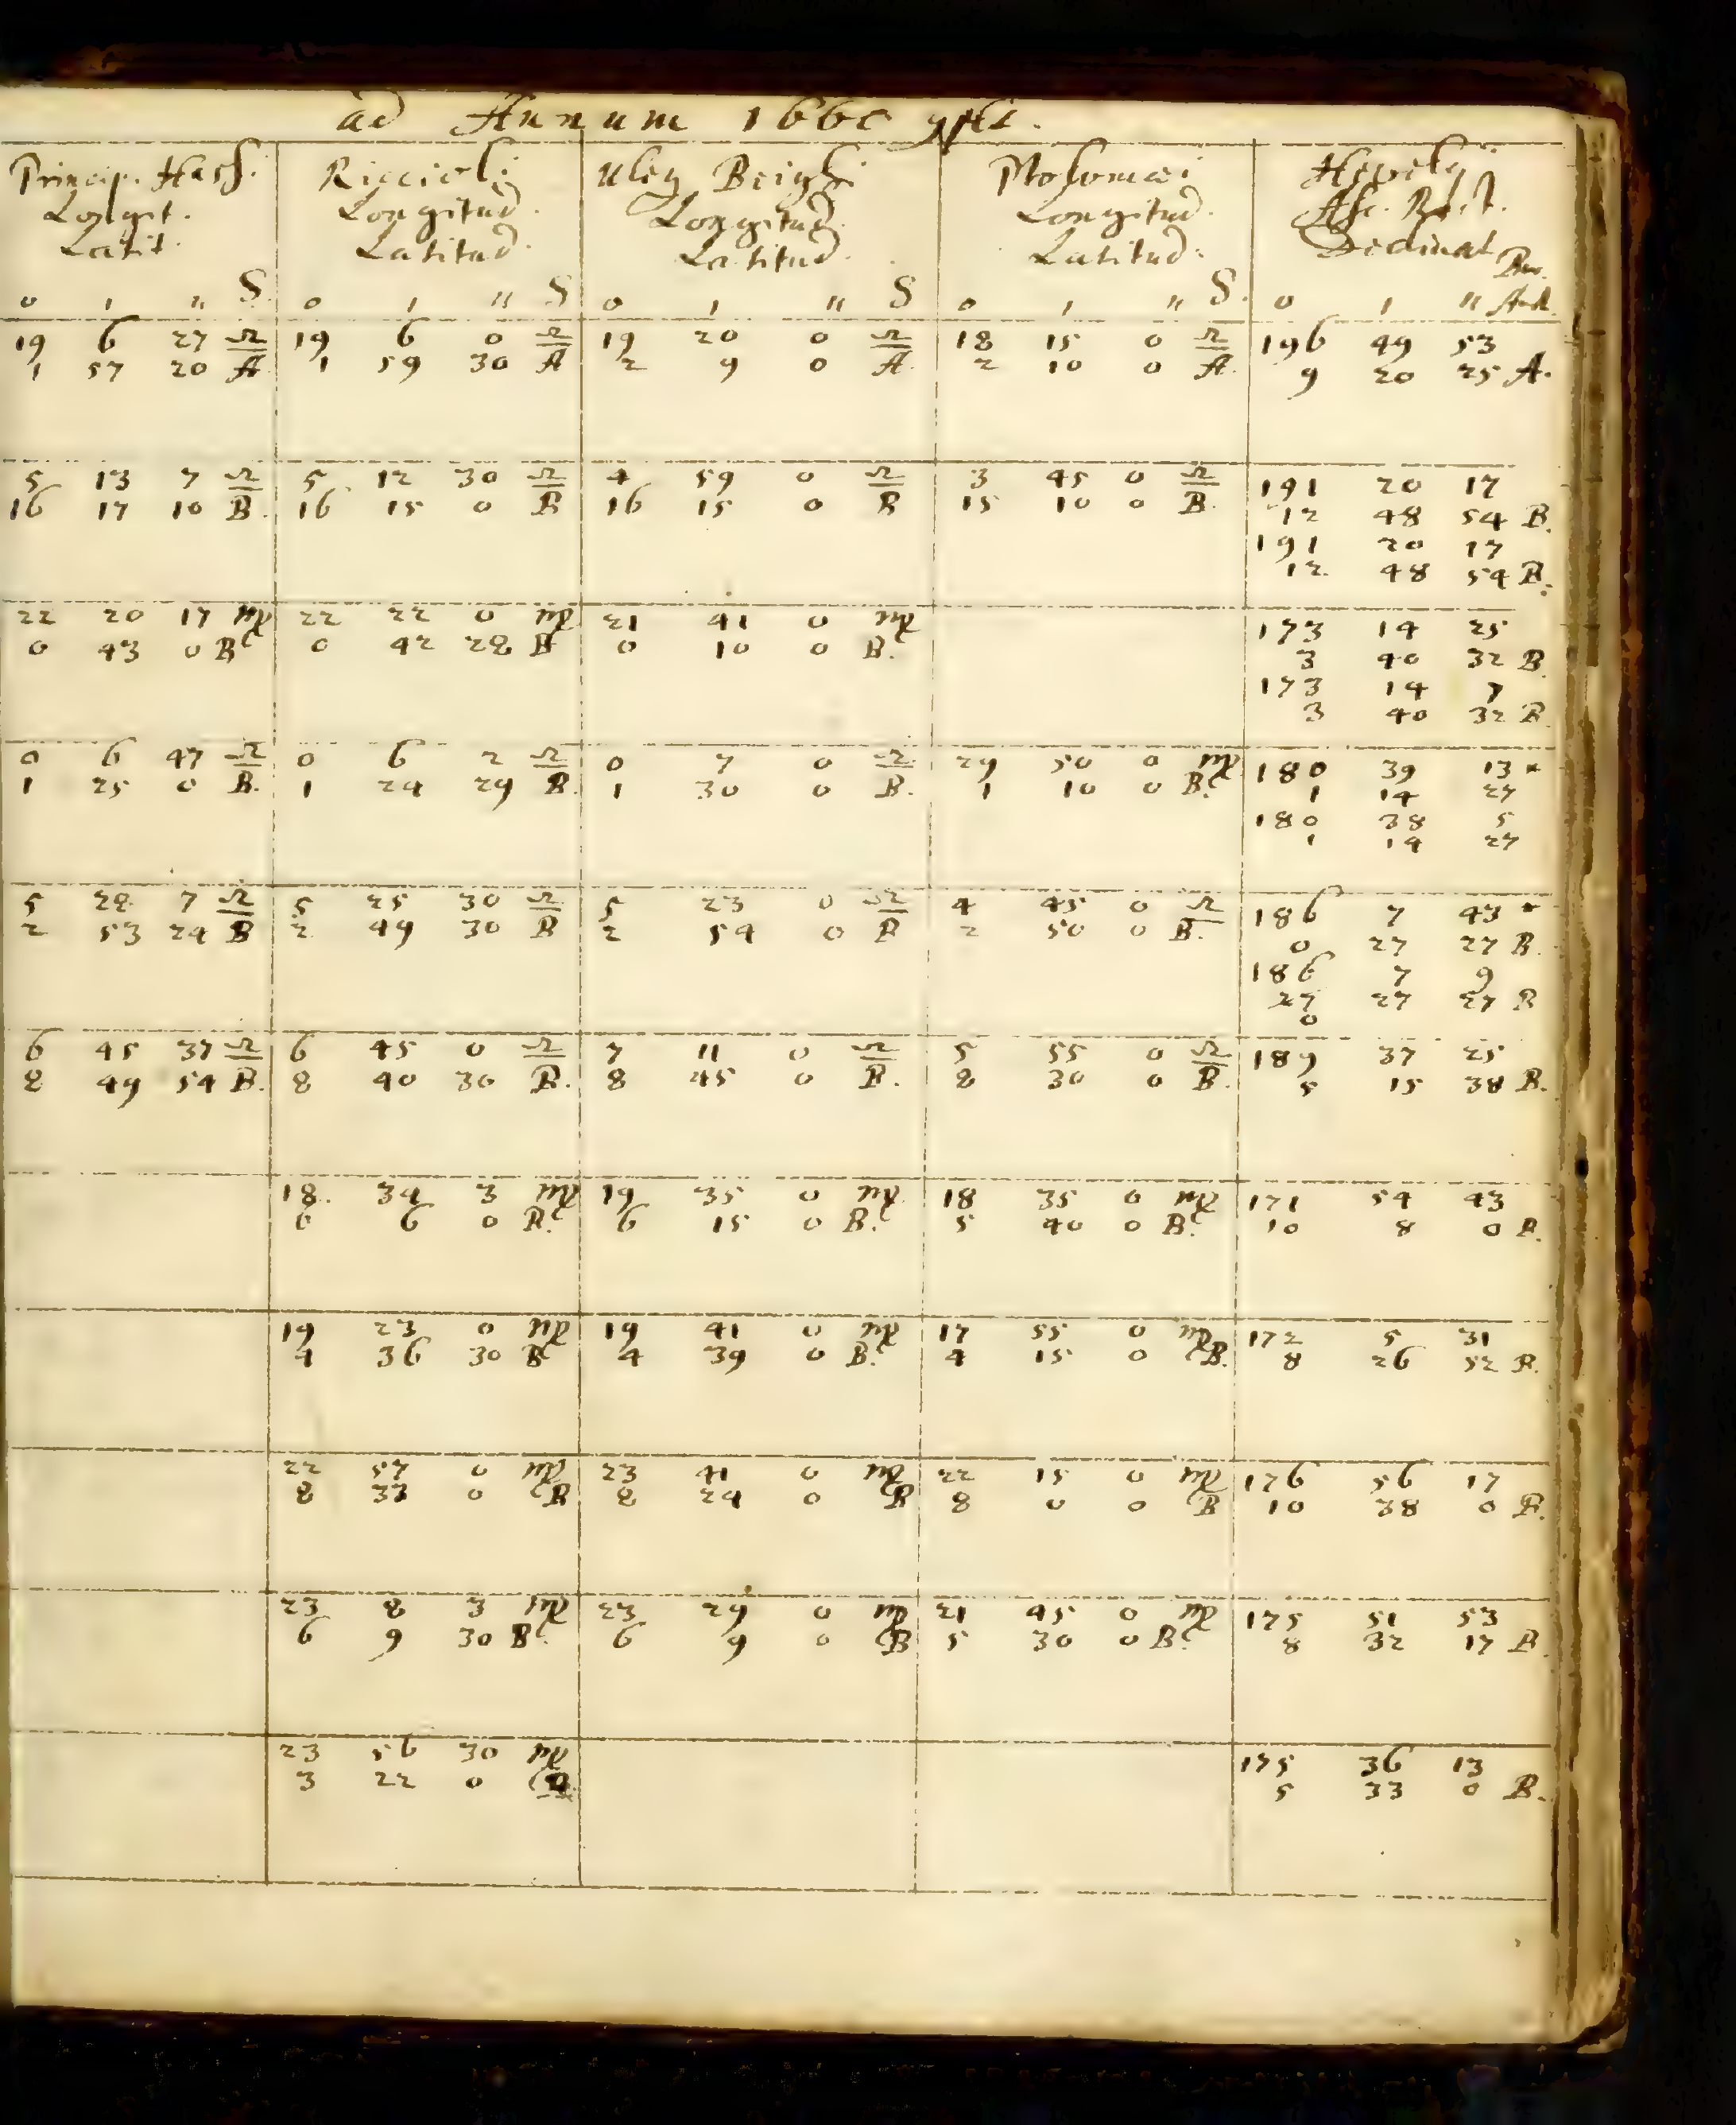 ad Annum 1660
Princip. Hass. Riccioli: Uleg Beighi Ptolomæi Hevelij
Longit. Longitud. Longitud. Longitud. Asc. Rect.
Latit. Latitud. Latitud. Latitud. Declinat Bor.
0 ı ıı S. 0 ı ıı S 0 ı ıı S 0 ı ıı S. 0 ı ıı Aust.
19 6 27 ♎ 19 6 0 ♎ 19 20 0 ♎ 18 15 0 ♎ 196 49 53
1 57 20 A 1 59 30 A 2 9 0 A. 2 10 0 A. 9 20 25 A.
5 13 7 ♎ 5 12 30 ♎ 4 59 0 ♎ 3 45 0 ♎ 191 20 17
16 17 10 B. 16 15 0 B 16 15 0 B 15 10 0 B. 12 48 54 B.
191 20 17
12. 48 54 B.
22 20 17 ♍ 22 22 0 ♍ 21 41 0 ♍ 173 14 25
0 43 0 B 0 42 28 B 0 10 0 B. 3 40 32 B.
173 14 7
3 40 32 B.
0 6 47 ♎ 0 6 2 ♎ 0 7 0 ♎ 29 50 0 ♍ 180 39 13 *
1 25 0 B. 1 24 29 B. 1 30 0 B. 1 10 0 B. 1 14 27
180 38 5
1 14 27
5 28 7 ♎ 5 25 30 ♎ 5 23 0 ♎ 4 45 0 ♎ 186 7 43 *
2 53 24 B 2 49 30 B 2 54 0 B 2 50 0 B. 0 27 27 B.
186 7 9
27 27 27 B
0
6 45 37 ♎ 6 45 0 ♎ 7 11 0 ♎ 5 55 0 ♎ 189 37 25
8 49 54 B. 8 40 30 B. 8 45 0 B. 8 30 0 B. 5 15 38 B.
18. 34 3 ♍ 19 35 0 ♍ 18 35 0 ♍ 171 54 43
6 6 0 B. 6 15 0 B. 5 40 0 B. 10 8 0 B.
19 23 0 ♍ 19 41 0 ♍ 17 55 0 ♍ 172 5 31
4 36 30 B 4 39 0 B. 4 15 0 B. 8 26 52 B.
22 57 0 ♍ 23 41 0 ♍ 22 15 0 ♍ 176 56 17
8 33 0 B 8 24 0 B 8 0 0 B 10 38 0 B.
23 8 3 ♍ 23 29 0 ♍ 21 45 0 ♍ 175 51 53
6 9 30 B. 6 9 0 B 5 30 0 B. 8 32 17 B.
23 56 30 ♍ 175 36 13
3 22 0 5 33 0 B.